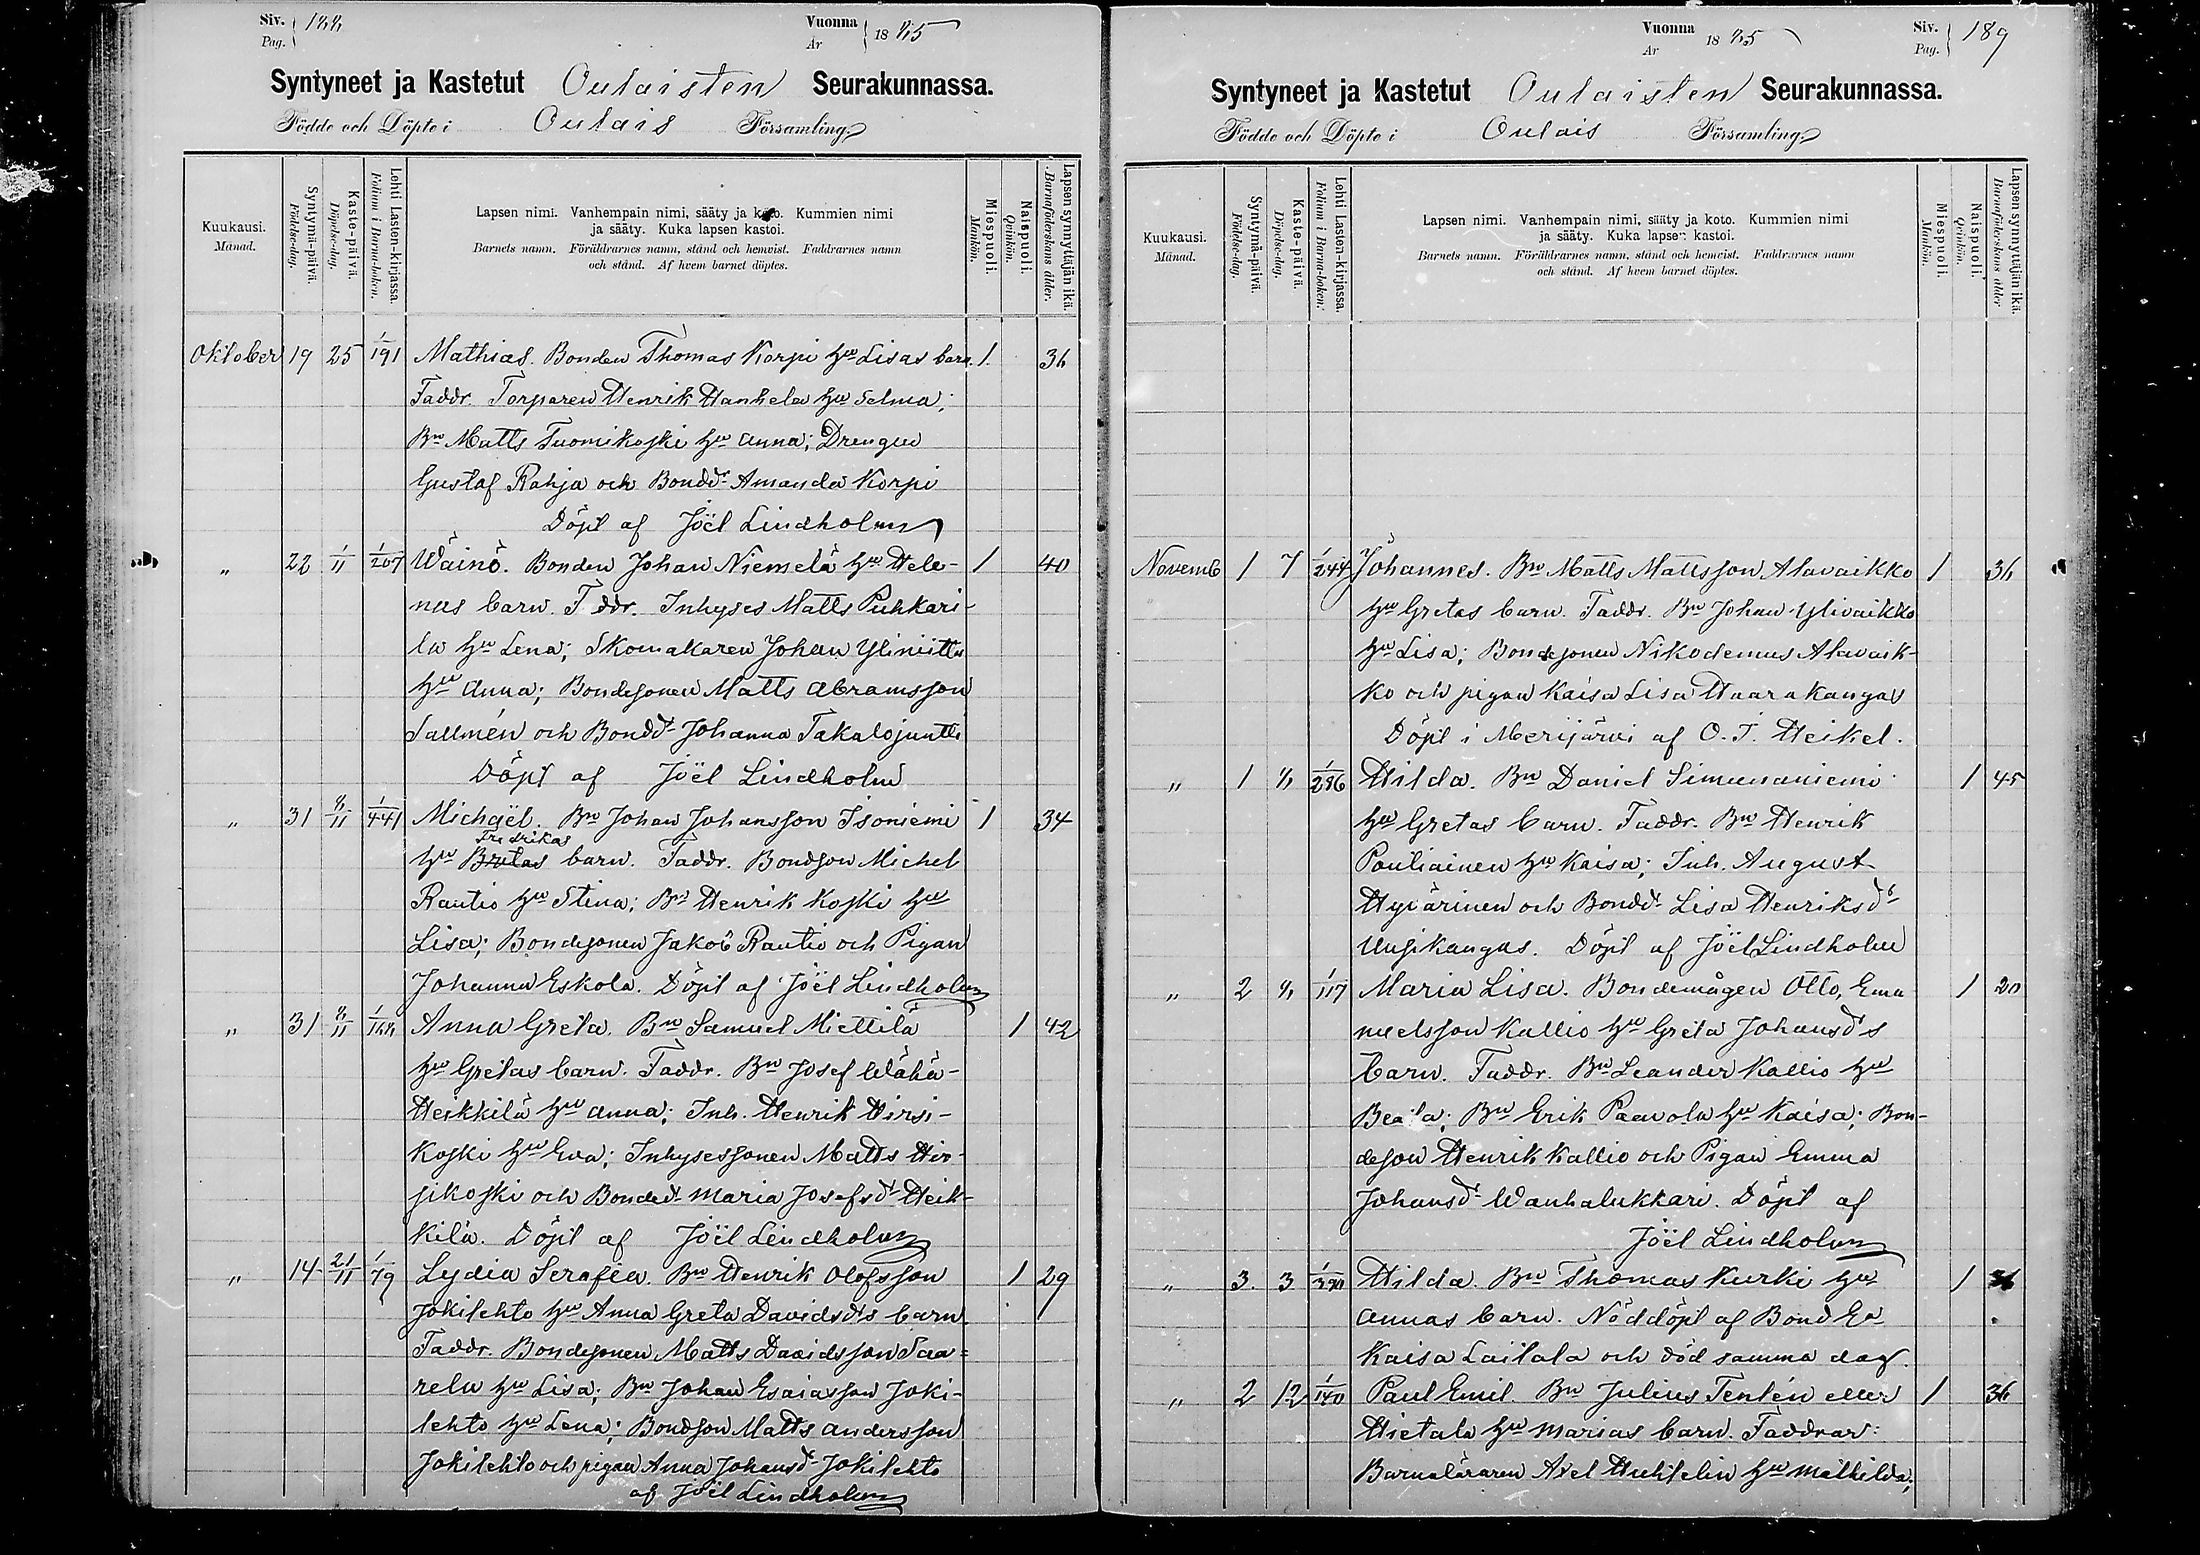 Siv. Pag. 188
Vuonna År 1885
Syntyneet ja Kastetut Oulaisten Seurakunnassa.
Födde och Döpte i Oulais Församling
Kuukausi. Månad.
Syntymä-päivä. Födelse-dag.
Kaste-päivä. Döpelse-dag.
Lehti Lasten-kirjassa. Folium i Barna-boken.
Lapsen nimi. Vanhempain nimi, sääty ja koto. Kummien nimi
ja sääty. Kuka lapsen kastoi.
Barnets namn. Föräldrarnes namn, stånd och hemvist. Faddrarnes namn
och stånd. Af hvem barnet döptes.
Miespuoli. Mankön.
Naispuoli. Qvinkön.
Lapsen synnyttäjän ikä. Barnaföderskans ålder.
Oktober 19 25 1/191 Mathias. Bonden Thomas Korpi hu Lisas barn. 1. 36
Faddr. Torparen Henrik Hankela hu Selma;
Bn Matts Tuomikoski hu Anna; Drengen
Gustaf Rahja och Bondd. Amanda Korpi
Döpt af Joël Lindholm
" 22 1/11 1/207 Wäinö. Bonden Johan Niemelä hu Hele- 1 40
nas barn. F ddr. Inhyses Matts Puhkari-
la hu Lena; Skomakaren Johan Yliniitty
hu Anna; Bondesonen Matts Abramsson
Sallmén och Bondd. Johanna Takalojuntti
Döpt af Joël Lindholm
" 31 8/11 1/441 Michaël. Bn Johan Johansson Isoniemi 1 34
Fredrikas
hu Bretas barn. Faddr. Bondson Michel
Rautio hu Stina; Bn Henrik Koski hu
Lisa; Bondesonen Jakob Rautio och Pigan
Johanna Eskola. Döpt af Joël Lindholm
" 31 8/11 1/168 Anna Greta. Bn Samuel Miettilä 1 42
hu Gretas barn. Faddr. Bn Josef Wähä-
Heikkilä hu Anna; Inh. Henrik Hirsi-
koski hu Eva; Inhysessonen Matts Hir-
sikoski och Bonded. Maria Josefsd. Heik-
kilä. Döpt af Joël Lindholm
" 14 21/11 1/79 Lydia Serafia. Bn Henrik Olofsson 1 29
Jokilehto hu Anna Greta Davidsd:s barn
Faddr. Bondesonen Matts Davidsson Saa=
rela hu Lisa; Bn Johan Esaiasson Joki-
lehto hu Lena; Bondson Matts Andersson
Jokilehto och pigan Anna Johansd. Jokilehto
af Joël Lindholm
Vuonna År 1885
Siv. Pag. 189
Syntyneet ja Kastetut Oulaisten Seurakunnassa.
Födde och Döpte i Oulais Församling
Kuukausi. Månad.
Syntymä-päivä. Födelse-dag.
Kaste-päivä. Döpelse-dag.
Lehti Lasten-kirjassa. Folium i Barna-boken.
Lapsen nimi. Vanhempain nimi, sääty ja koto. Kummien nimi
ja sääty. Kuka lapsen kastoi.
Barnets namn. Föräldrarnes namn, stånd och hemvist. Faddrarnes namn
och stånd. Af hvem barnet döptes.
Miespuoli. Mankön.
Naispuoli. Qvinkön.
Lapsen synnyttäjän ikä. Barnaföderskans ålder
Novemb 1 7 1/244 Johannes. Bn Matts Mattsson Alavaikko 1 36
hu Gretas barn. Faddr. Bn Johan Ylivaikko
hu Lisa; Bondesonen Nikodemus Alavaik-
ko och pigan Kaisa Lisa Haarakangas
Döpt i Merijärvi af O. F. Heikel.
" 1 8 1/286 Hilda. Bn Daniel Simunaniemi 1 45
hu Gretas barn. Faddr. Bn Henrik
Pouliainen hu Kaisa; Inh. August
Hyvärinen och Bondd. Lisa Henriksd:
Uusikangas. Döpt af Joël Lindholm
" 2 8 1/117 Maria Lisa. Bondemågen Otto Ema- 1 20
nuelsson Kallio hu Greta Johansd:s
barn. Faddr. Bn Leander Kallio hu
Beata; Bn Erik Paavola hu Kaisa; Bon-
deson Henrik Kallio och Pigan Emma
Johansd. Wanhalukkari. Döpt af
Joël Lindholm
" 3. 3 Hilda. Bn Thomas Kurki hu 1 36
Annas barn. Nöddöpt af Bond Ea
Kaisa Laitala och död samma dag.
" 2 12 1/140 Paul Emil. Bn Julius Tentén eller 1 36
Hietala hu Marias barn. Faddrar:
Barnaläraren Axel Huhtelin hu Mathilda;